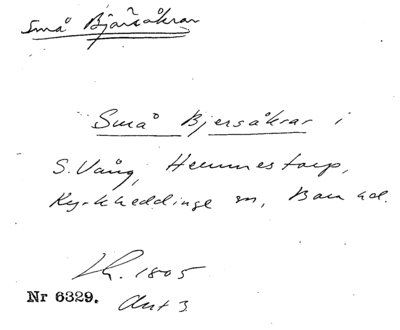 Små Bjärsåkrar
Små Bjersåkrar i
S. Vång, Hemmestorp,
Kyrkheddinge sn, Bara hd.
Lh. 1805
Nr 6329. Akt 3